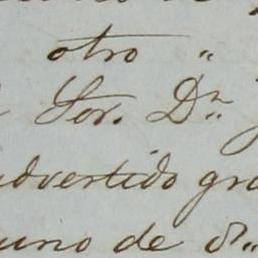 otro "
Sor. Dn
advertido gra
uno de